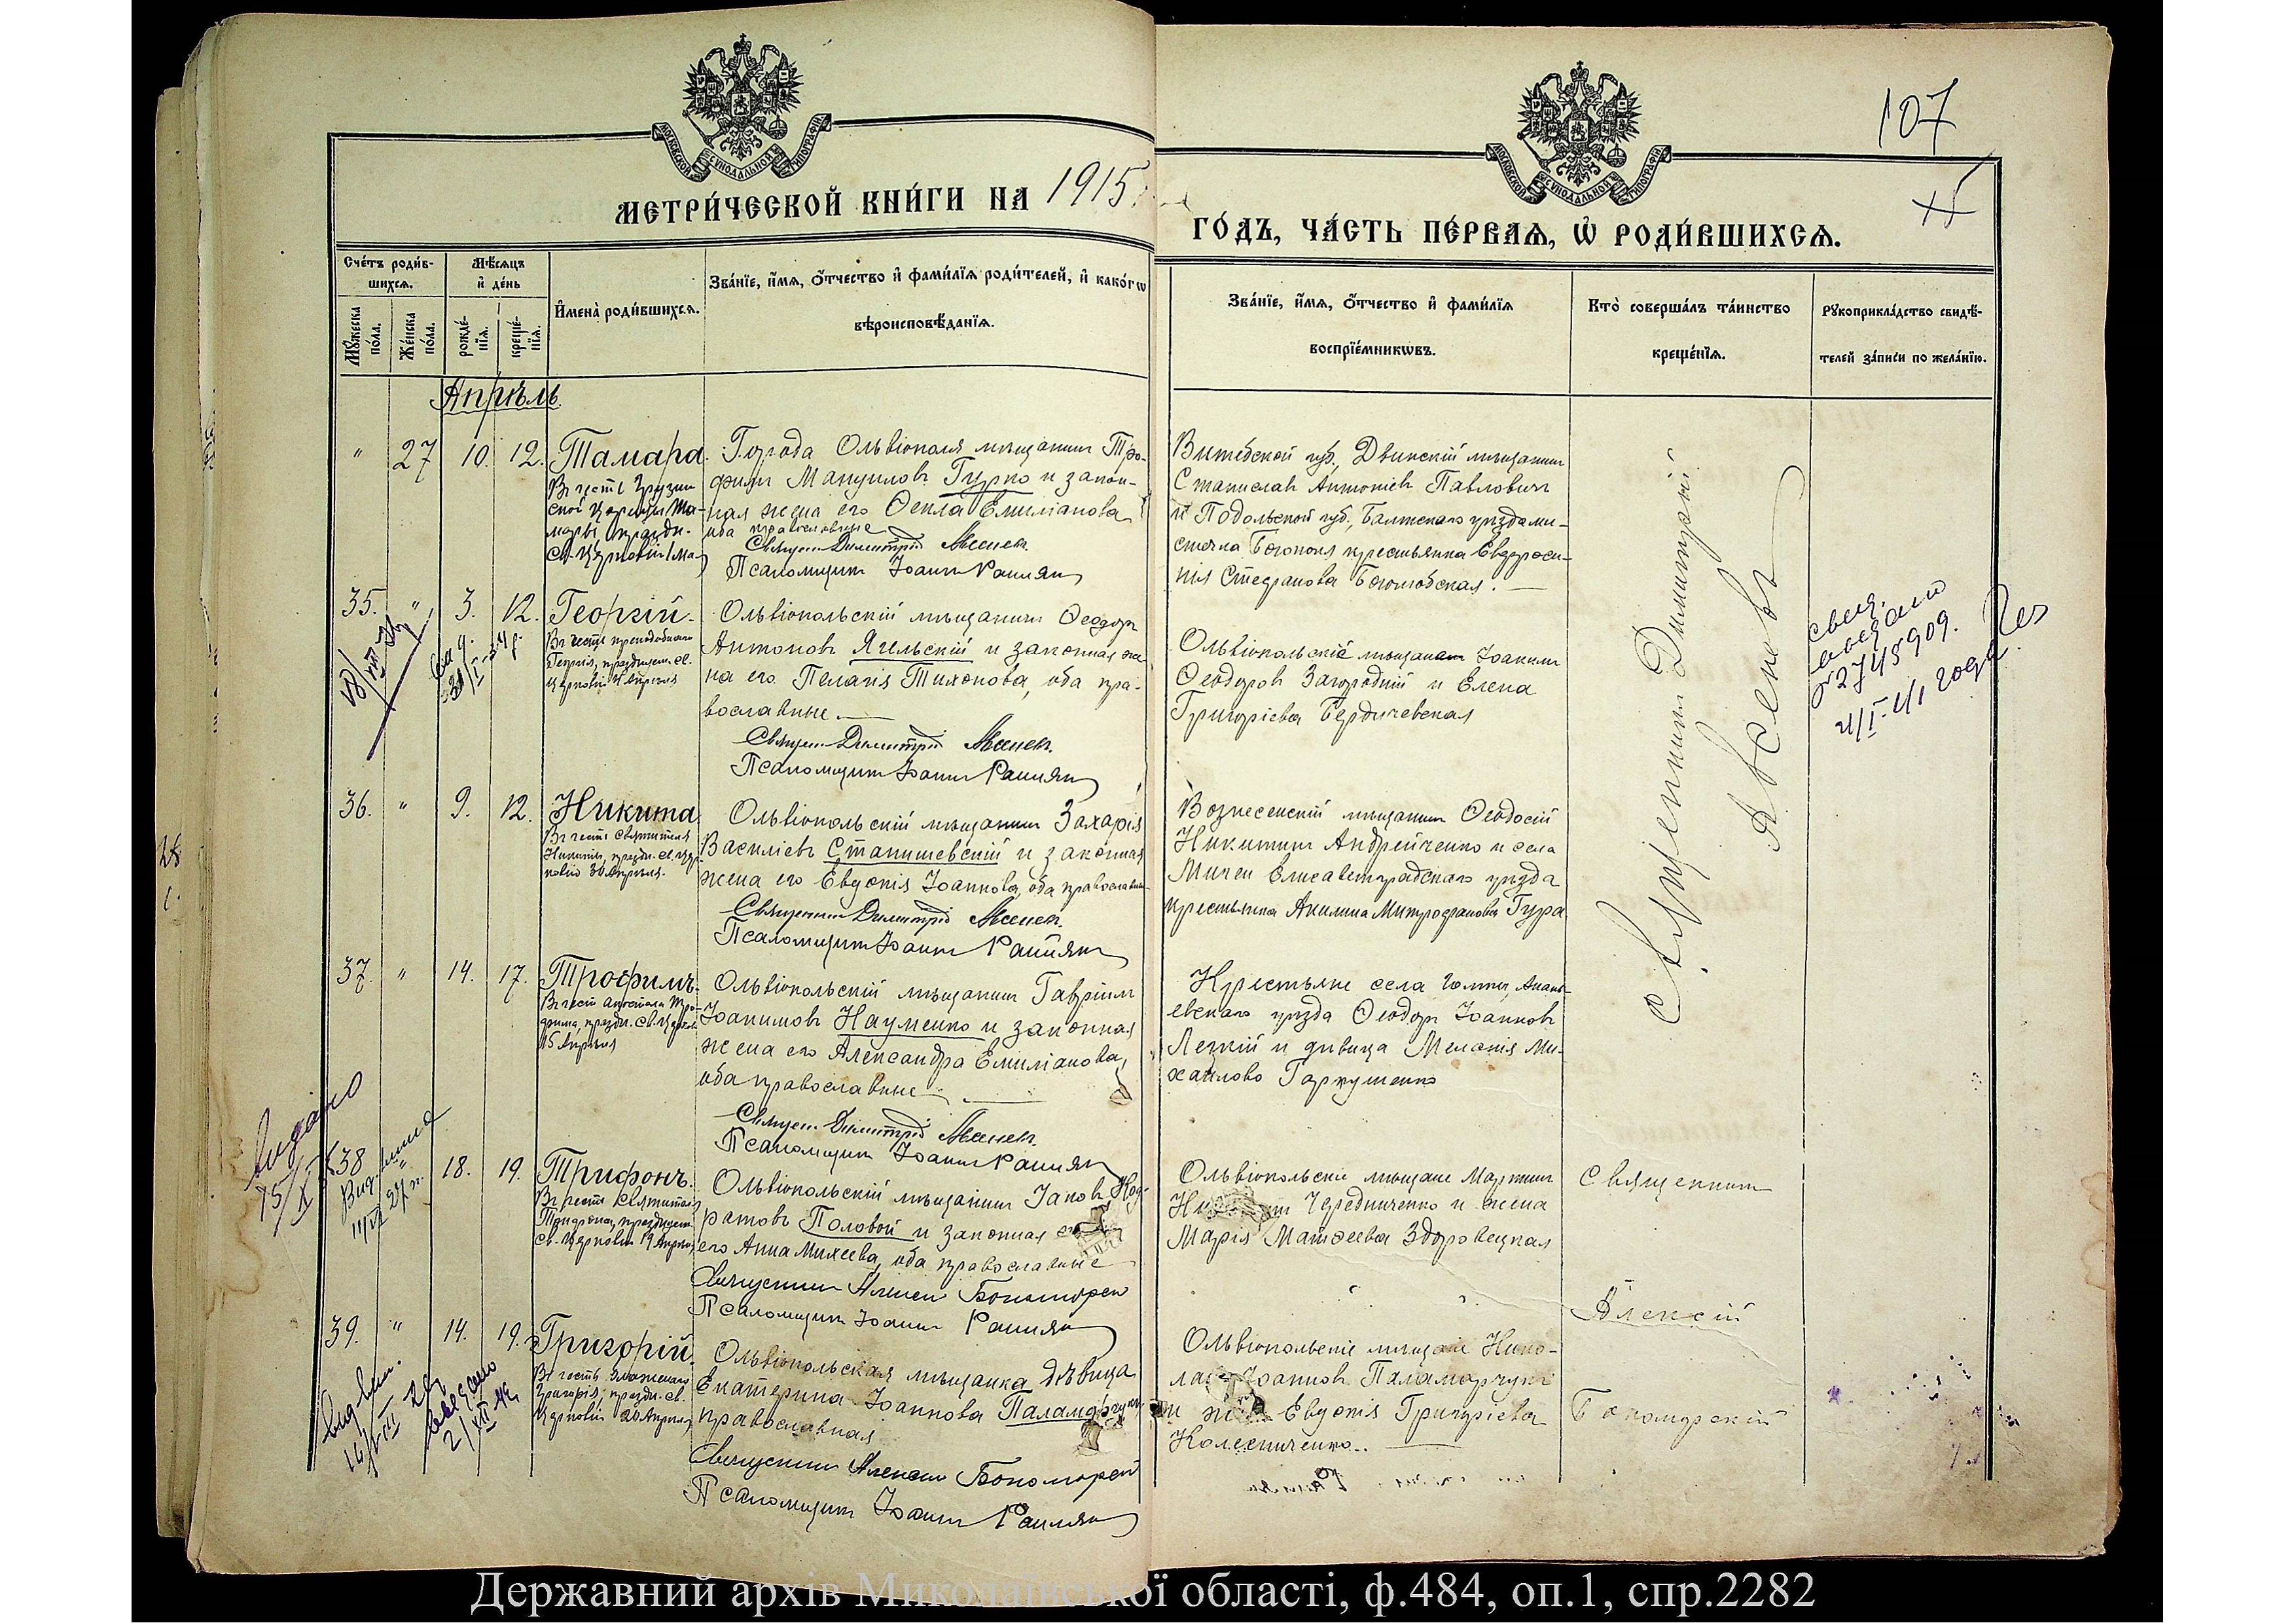 107
МЕТРИ́ЧЕСКОЙ КНИ́ГИ НА 1915
ГО́ДЪ, ЧА́СТЬ ПЕ́РВАЯ, Ѡ РОДИ́ВШИХСЯ.
Сче́тъ роди́в-
шихся.
Му́жеска
по́ла.
Же́нска
по́ла.
Мѣ́сяцъ
и де́нь
рожде́-
нїя.
креще́-
нїя.
Имена̀ роди́вшихся.
Зва́нїе, и́мя, о́тчество и фами́лїя роди́телей, и како́гѡ
вѣроисповѣ́данїя.
Зва́нїе, и́мя, о́тчество и фами́лїя
воспрїе́мникѡвъ.
Кто̀ соверша́лъ та́инство
креще́нїя.
Рукоприкла́дство свидѣ́-
телей за́писи по жела́нїю.
Апрѣль
" 27 10. 12. Тамара
Въ честь Грузин-
ской Царицы Та-
мары, праздн.
Св. Церковію 1 ма
Города Ольвіополя мѣщанинъ Тро-
фимъ Мануиловъ Гурко и закон-
ная жена его Ѳекла Емиліанова
оба православные
Священ. Димитрій
Псаломщикъ Іоаннъ
Витебской губ., Двинскій мѣщанинъ
Станиславъ Антоніевъ Павловичъ
и Подольской губ., Балтскаго уѣзда мѣ-
стечка Богополя крестьянка Евфроси-
нія Стефанова
35. " 3. 12. Георгій.
Въ честь преподобнаго
Георгія, празднуем. св.
Церковію Апрѣля
Ольвіопольскій мѣщанинъ Ѳеодоръ
Антоновъ Ягельскій и законная же-
на его Пелагія Тихонова, оба пра-
вославные
Священ. Димитрій
Псаломщикъ Іоаннъ
Ольвіопольскіе мѣщане Іоакимъ
Ѳеодоровъ Загородній и Елена
Григоріева Бердичевская
№ 2745909.
36. " 9. 12. Никита
Въ честь Святителя
Никиты, праздн. св. Цер-
ковію 30 Апрѣля.
Ольвіопольскій мѣщанинъ Захарія
Василіевъ Станишевскій и законная
жена его Евдокія Іоаннова, оба православн.
Священникъ Димитрій
Псаломщикъ Іоаннъ
Вознесенскій мѣщанинъ Ѳеодосій
Никитинъ Андрейченко и села
Елисаветградскаго уѣзда
крестьянка Акилина Митрофанова Гура
Священникъ Димитрій
Авсеневъ
37. " 14. 17. Трофимъ.
Въ честь Апостола Тро-
фима, праздн. св. Церков.
15 Апрѣля
Ольвіопольскій мѣщанинъ Гавріилъ
Іоакимовъ Науменко и законная
жена его Александра Емиліанова,
оба православные
Священ. Димитрій
Псаломщикъ Іоаннъ
Крестьяне села Голты, Анань-
евскаго уѣзда Ѳеодоръ Іоанновъ
Легкій и дѣвица Меланія Ми-
хаилова Гаркушенко
38 " 18. 19. Трифонъ.
Въ честь Святителя
Трифона, празднуем.
Св. Церковію 19 Апрѣля
Ольвіопольскій мѣщанинъ Іаковъ Код-
ратовъ Половой и законная
его Анна Михеева, оба православные
Священникъ Алексій
Псаломщикъ Іоаннъ
Ольвіопольскіе мѣщане Мартинъ
Чередниченко и жена
Марія Матѳеева Здоровецкая
Священникъ
Алексій
39. " 14. 19. Григорій.
Григорія, праздн. св.
Церковію 20 Апрѣля
Ольвіопольская мѣщанка дѣвица
Екатерина Іоаннова
православная
Священникъ Алексій
Псаломщикъ Іоаннъ
Ольвіопольскіе мѣщане Нико-
лай Іоанновъ Паламарчукъ
и Евдокія Григоріева
Колесниченко.
Державний архів Миколаївської області, ф.484, оп.1, спр.2282